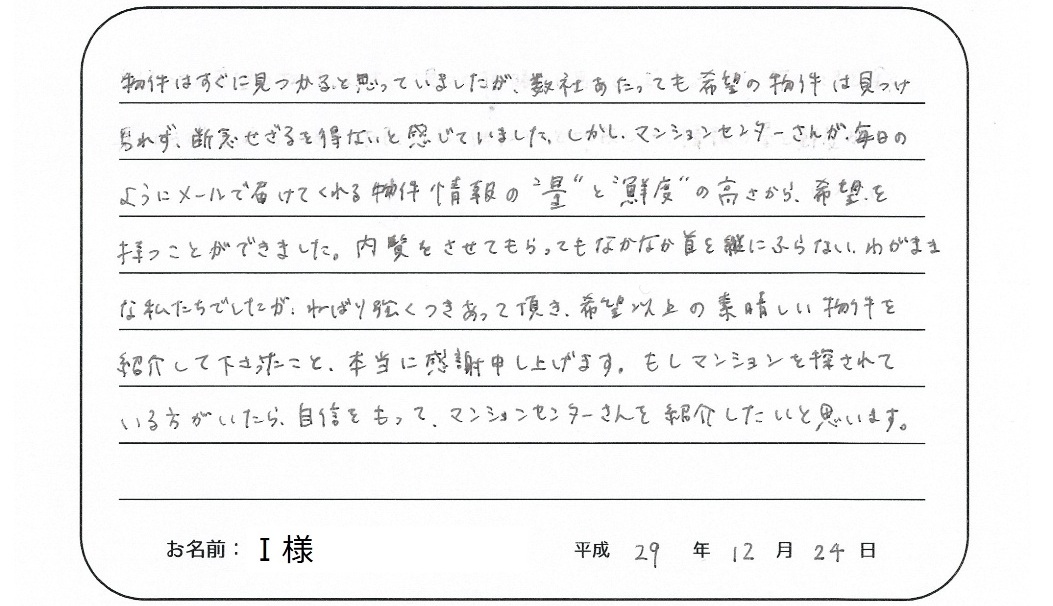 物件はすぐに見つかると思っていましたが、数社あたっても希望の物件は見つけ
られず、断念せざるを得ないと感じていました。しかし、マンションセンターさんが、毎日の
ようにメールで届けてくれる物件情報の“量”と“鮮度”の高さから、希望を
持つことができました。内覧をさせてもらってもなかなか首を縦にふらない、わがまま
な私たちでしたが、ねばり強くつきあって頂き、希望以上の素晴しい物件を
紹介して下さったこと、本当に感謝申し上げます。もしマンションを探されて
いる方がいたら、自信をもって、マンションセンターさんを紹介したいと思います。
お名前： I 様 平成 29 年 12 月 24 日